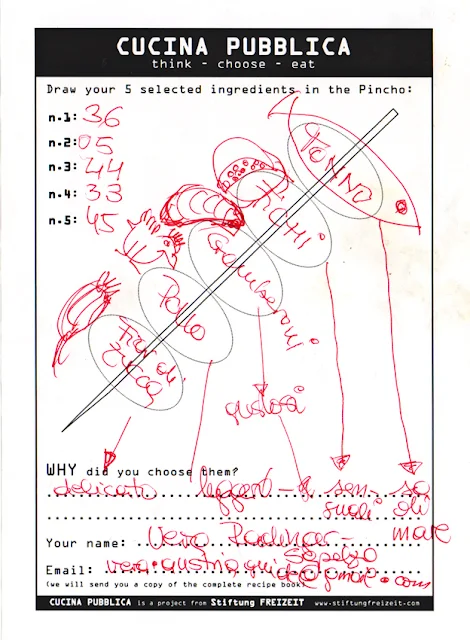 CUCINA PUBBLICA
think - choose - eat
Draw your 5 selected ingredients in the Pincho:
n.1: 36
n.2: 05
n.3: 44
n.4: 33
n.5: 45
TONNO
FICHI
Gamberoni
Pollo
Fiori di
zucca
gustosi
WHY did you choose them?
delicato leggero sa
di
mare
Your name: Vera
Email:
(we will send you a copy of the complete recipe book)
CUCINA PUBBLICA is a project from Stiftung FREIZEIT www.stiftungfreizeit.com